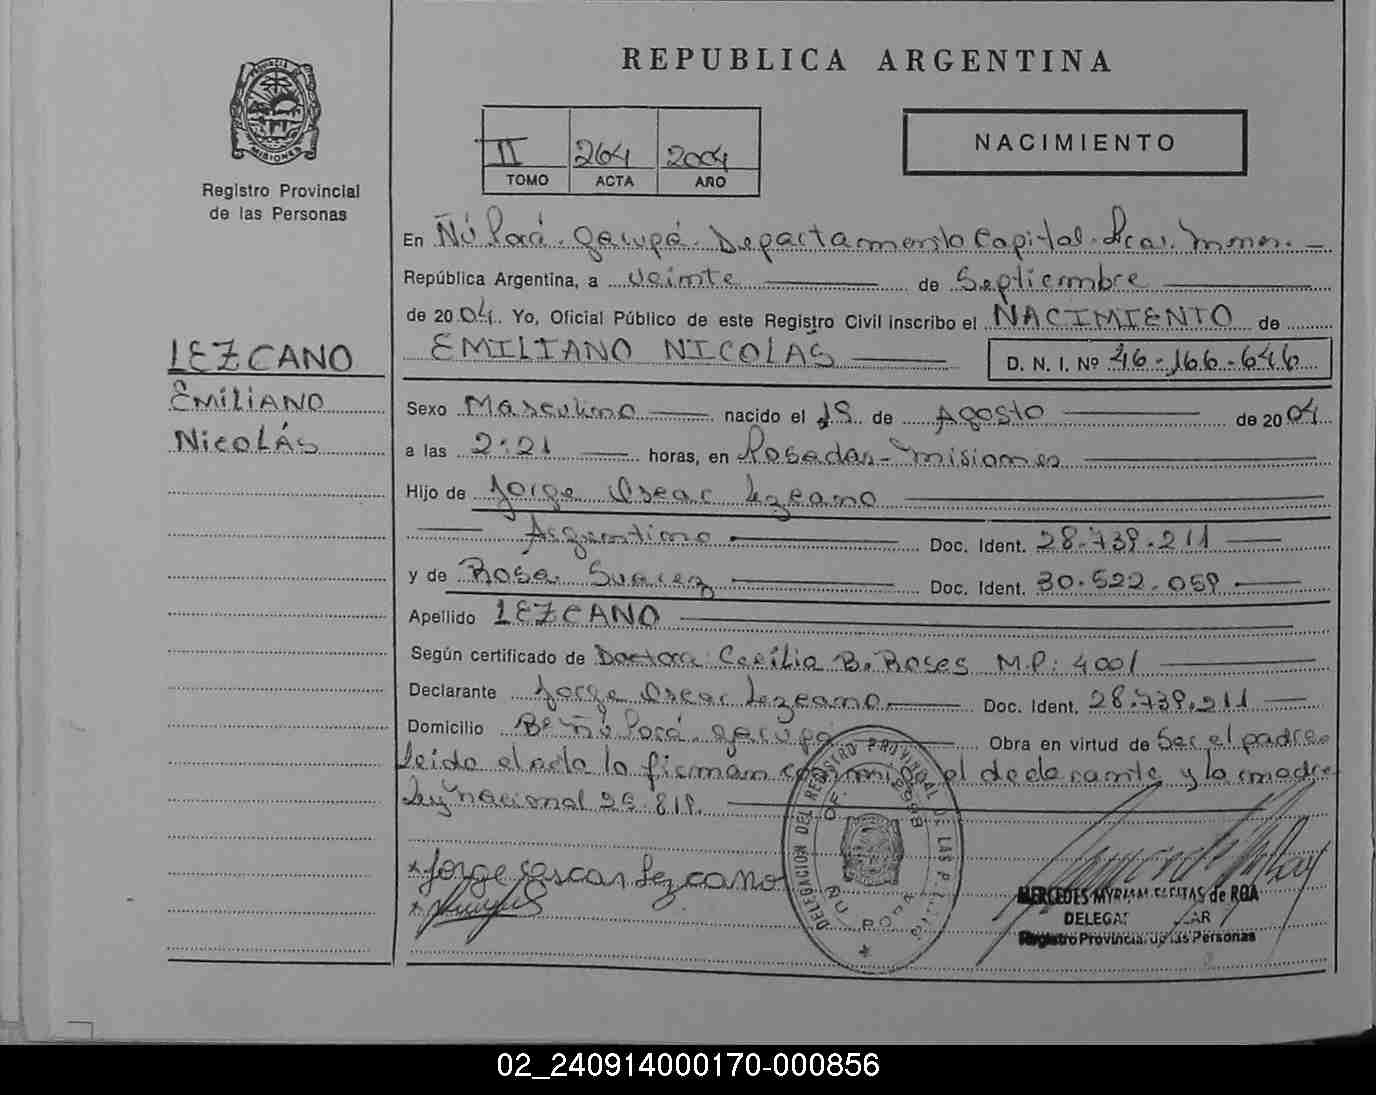 REPUBLICA ARGENTINA
PROVINCIA DE
MISIONES
Registro Provincial
de las Personas
II 264 2004
TOMO ACTA AÑO
NACIMIENTO
En Ñú Porá. Garupá. Departamento Capital.
República Argentina, a veinte de Septiembre
de 2004. Yo, Oficial Público de este Registro Civil inscribo el NACIMIENTO de
EMILIANO NICOLÁS D. N. I. Nº 46-166-646
LEZCANO
EMILIANO
NICOLÁS
Sexo Masculino nacido el de Agosto de 2004
a las 2:21 horas, en Posadas-Misiones
Hijo de Jorge Oscar Lezcano
Argentino Doc. Ident. 28.739.211
y de Rosa Suarez Doc. Ident. 30.522.059
Apellido LEZCANO
Según certificado de Doctora: Cecilia B. Boses M.P: 4001
Declarante Jorge Oscar Lezcano Doc. Ident. 28.739.211
Domicilio Bº Ñú Porá. Garupá Obra en virtud de Ser el padre
leido el acta la firman conmigo el declarante y la madre
Ley Nacional
Jorge Oscar Lezcano
DELEGACION DEL REGISTRO PROVINCIAL DE LAS P.
ÑU PORA
MERCEDES MYRIAM de ROA
Registro Provincial de las Personas
02_240914000170-000856